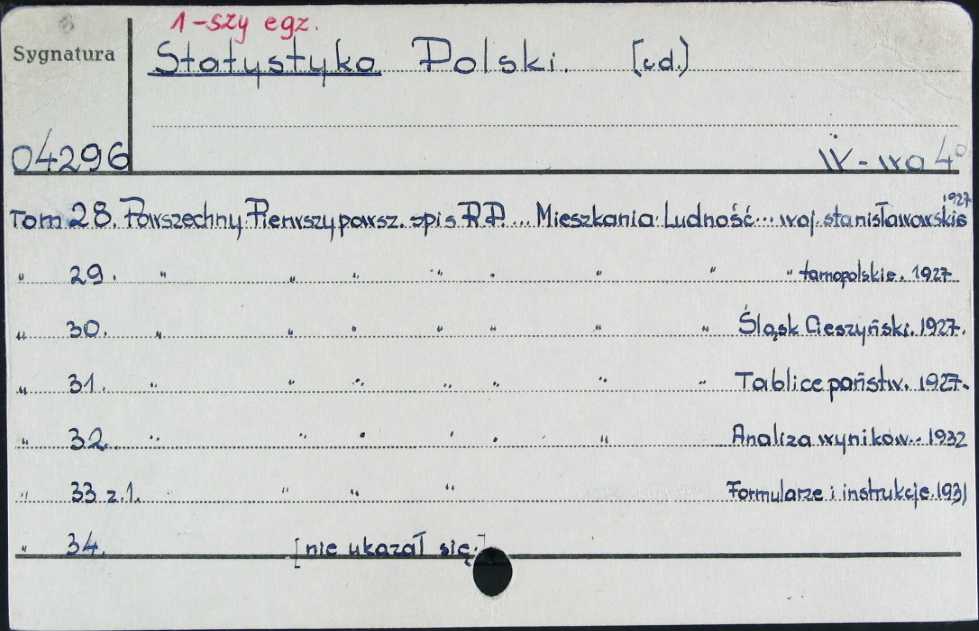 1-szy egz.
Sygnatura
Statystyka Polski. [cd.)
04296
W-wa 4°
1927
Tom 28. Powszechny Pierwszy powsz. spis R.P. ... Mieszkania Ludność... woj. stanisławowskie
" 29. " " " " " " " " tarnopolskie. 1927
" 30. " " " " " " " Śląsk Cieszyński. 1927.
" 31. " " " " " " " Tablice państw. 1927.
" 32. " " " " " " Analiza wyników.. 1932
" 33 z.1. " " " Formularze i instrukcje. 1931
" 34. [nie ukazał się.]